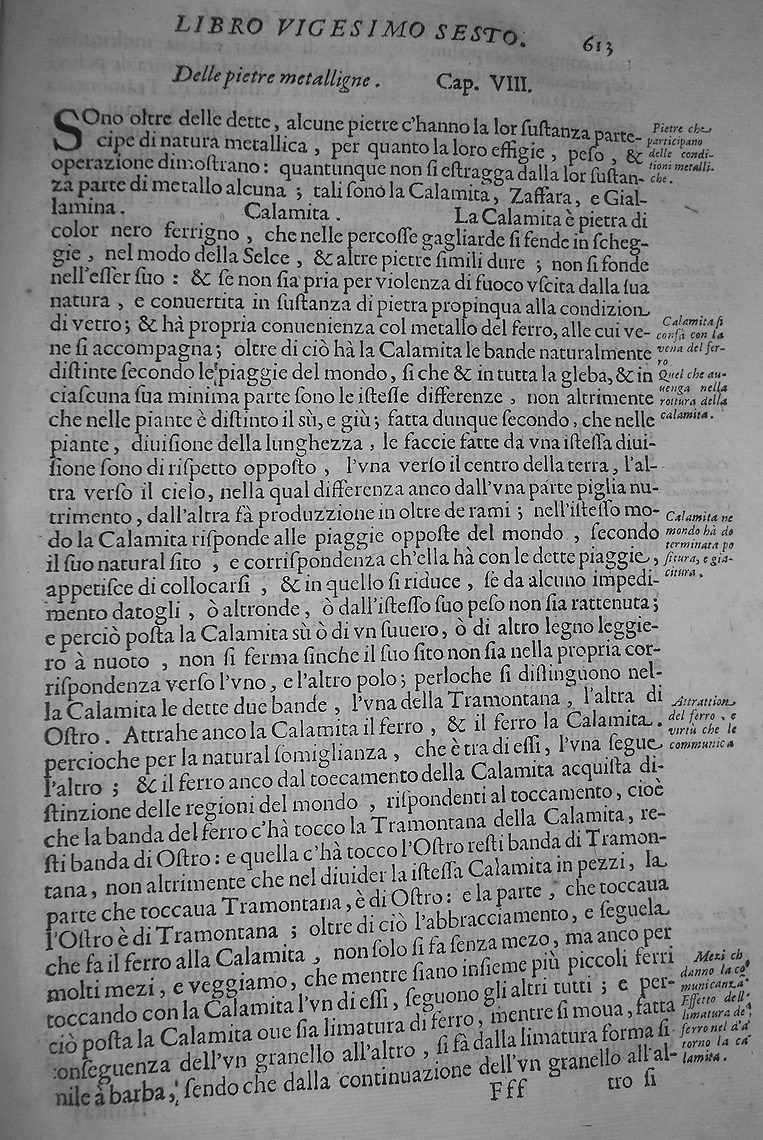 LIBRO VIGESIMO SESTO. 613
Delle pietre metalligne. Cap. VIII.
SOno oltre delle dette, alcune pietre c'hanno la lor ſuſtanza parte-
cipe di natura metallica, per quanto la loro effigie, peſo, &
operazione dimoſtrano: quantunque non ſi eſtragga dalla lor ſuſtan-
za parte di metallo alcuna; tali ſono la Calamita, Zaffara, e Gial-
lamina. Calamita. La Calamita è pietra di
color nero ferrigno, che nelle percoſſe gagliarde ſi fende in ſcheg-
gie, nel modo della Selce, & altre pietre ſimili dure; non ſi fonde
nell'eſſer ſuo: & ſe non ſia pria per violenza di fuoco vſcita dalla ſua
natura, e conuertita in ſuſtanza di pietra propinqua alla condizion
di vetro; & hà propria conuenienza col metallo del ferro, alle cui ve-
ne ſi accompagna; oltre di ciò hà la Calamita le bande naturalmente
diſtinte ſecondo le piaggie del mondo, ſi che & in tutta la gleba, & in
ciaſcuna ſua minima parte ſono le iſteſſe differenze, non altrimente
che nelle piante è diſtinto il sù, e giù; fatta dunque ſecondo, che nelle
piante, diuiſione della lunghezza, le faccie fatte da vna iſteſſa diui-
ſione ſono di riſpetto oppoſto, l'vna verſo il centro della terra, l'al-
tra verſo il cielo, nella qual differenza anco dall'vna parte piglia nu-
trimento, dall'altra fà produzzione in oltre de rami; nell'iſteſſo mo-
do la Calamita riſponde alle piaggie oppoſte del mondo, ſecondo
il ſuo natural ſito, e corriſpondenza ch'ella hà con le dette piaggie,
appetiſce di collocarſi, & in quello ſi riduce, ſe da alcuno impedi-
mento datogli, ò altronde, ò dall'iſteſſo ſuo peſo non ſia rattenuta;
e perciò poſta la Calamita sù ò di vn ſuuero, ò di altro legno leggie-
ro à nuoto, non ſi ferma finche il ſuo ſito non ſia nella propria cor-
riſpondenza verſo l'vno, e l'altro polo; perloche ſi diſtinguono nel-
la Calamita le dette due bande, l'vna della Tramontana, l'altra di
Oſtro. Attrahe anco la Calamita il ferro, & il ferro la Calamita.
percioche per la natural ſomiglianza, che è tra di eſſi, l'vna ſegue
l'altro; & il ferro anco dal toccamento della Calamita acquiſta di-
ſtinzione delle regioni del mondo, riſpondenti al toccamento, cioè
che la banda del ferro c'hà tocco la Tramontana della Calamita, re-
ſti banda di Oſtro: e quella c'hà tocco l'Oſtro reſti banda di Tramon-
tana, non altrimente che nel diuider la iſteſſa Calamita in pezzi, la
parte che toccaua Tramontana, è di Oſtro: e la parte, che toccaua
l'Oſtro è di Tramontana; oltre di ciò l'abbracciamento, e ſeguela
che fa il ferro alla Calamita, non ſolo ſi fa ſenza mezo, ma anco per
molti mezi, e veggiamo, che mentre ſiano inſieme più piccoli ferri
toccando con la Calamita l'vn di eſſi, ſeguono gli altri tutti; e per-
ciò poſta la Calamita oue ſia limatura di ferro, mentre ſi moua, fatta
conſeguenza dell'vn granello all'altro, ſi fà dalla limatura forma ſi-
nile à barba, ſendo che dalla continuazione dell'vn granello all'al-
Fff tro ſi
Pietre che
participano
delle condi-
tioni metalli-
che.
Calamita ſi
confà con la
vena del fer-
ro
Quel che au-
uenga nella
rottura della
calamita.
Calamita ne
mondo hà de
terminata po
ſitura, e gia-
citura.
Attrattion
del ferro, e
virtù che le
communica
Mezi ch
danno la co
municanza
Effetto dell'
limatura de
ferro nel d'a
torno la ca
lamita.